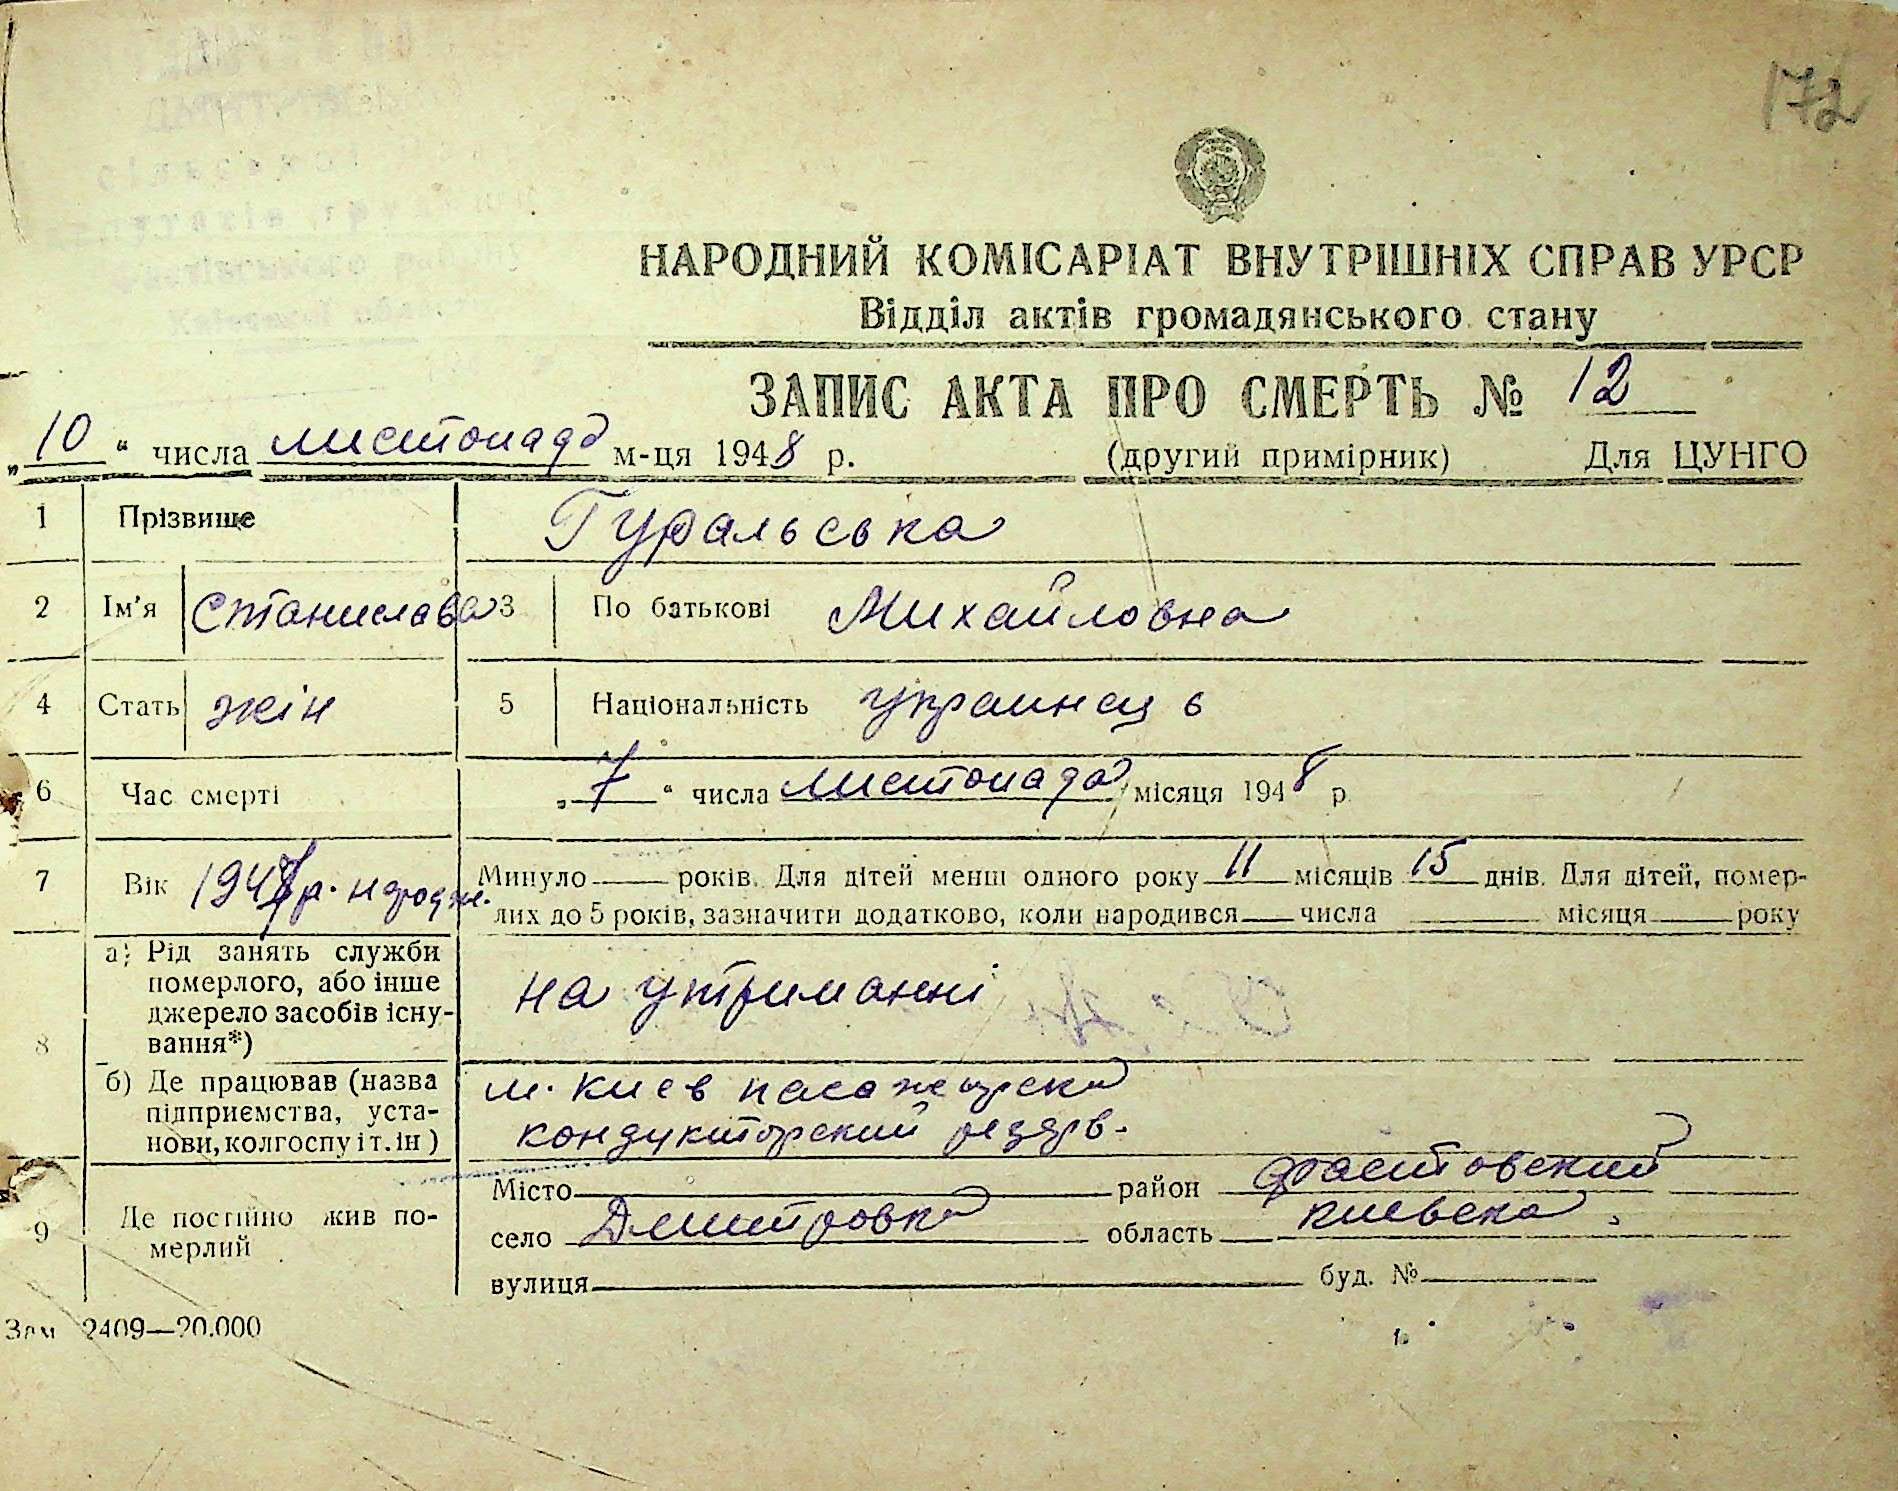 172
НАРОДНИЙ КОМІСАРІАТ ВНУТРІШНІХ СПРАВ УРСР
Відділ актів громадянського стану
ЗАПИС АКТА ПРО СМЕРТЬ № 12
„10“ числа листопада м-ця 1948 р. (другий примірник) Для ЦУНГО
1 Прізвище Гуральська
2 Ім'я Станислава 3 По батькові Михайловна
4 Стать жін 5 Національність украинец в
6 Час смерті „7“ числа листопада місяця 1948 р.
7 Вік 1947 р. народж. Минуло років. Для дітей менш одного року 11 місяців 15 днів. Для дітей, помер-
лих до 5 років, зазначити додатково, коли народився числа місяця року
8 а) Рід занять служби
померлого, або інше
джерело засобів існу-
вання*)
на утриманні
б) Де працював (назва
підприємства, уста-
нови, колгоспу і т. ін)
м. Киев пасажирска
кондукторский резерв.
9 Де постійно жив по-
мерлий
Місто район фастовский
село Дмитровка область киевска
вулиця буд. №
Зам 2409—20.000